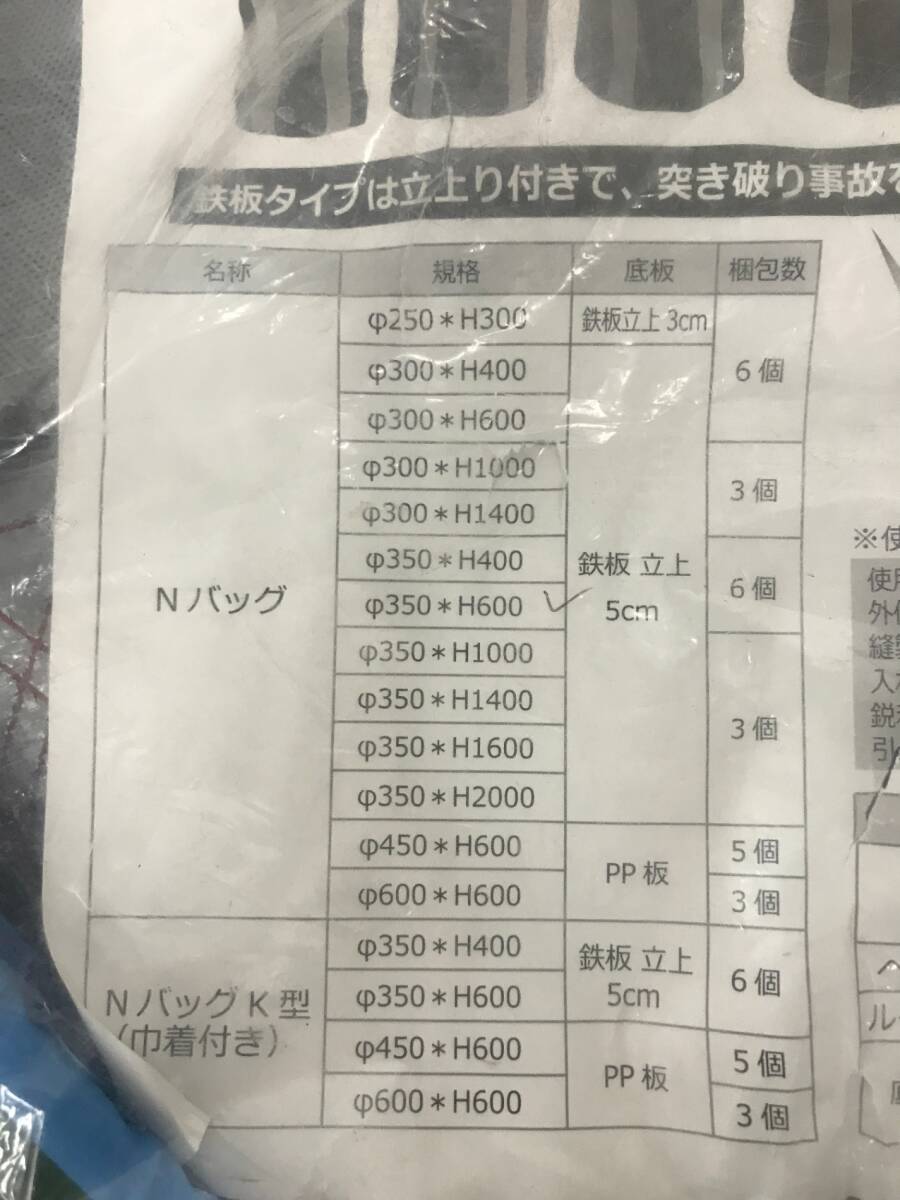 鉄板タイプは立上り付きで、突き破り事故を
名称 規格 底板 梱包数
Nバッグ
φ250*H300 鉄板立上3cm
φ300*H400
φ300*H600
6個
φ300*H1000
φ300*H1400
3個
φ350*H400
φ350*H600
6個
φ350*H1000
φ350*H1400
φ350*H1600
φ350*H2000
3個
鉄板 立上
5cm
φ450*H600
5個
φ600*H600
3個
PP板
NバッグK型
(巾着付き)
φ350*H400
φ350*H600
鉄板 立上
5cm
6個
φ450*H600
5個
φ600*H600
3個
PP板
※使
使用
外
縫製
入
鋭利
引
ル